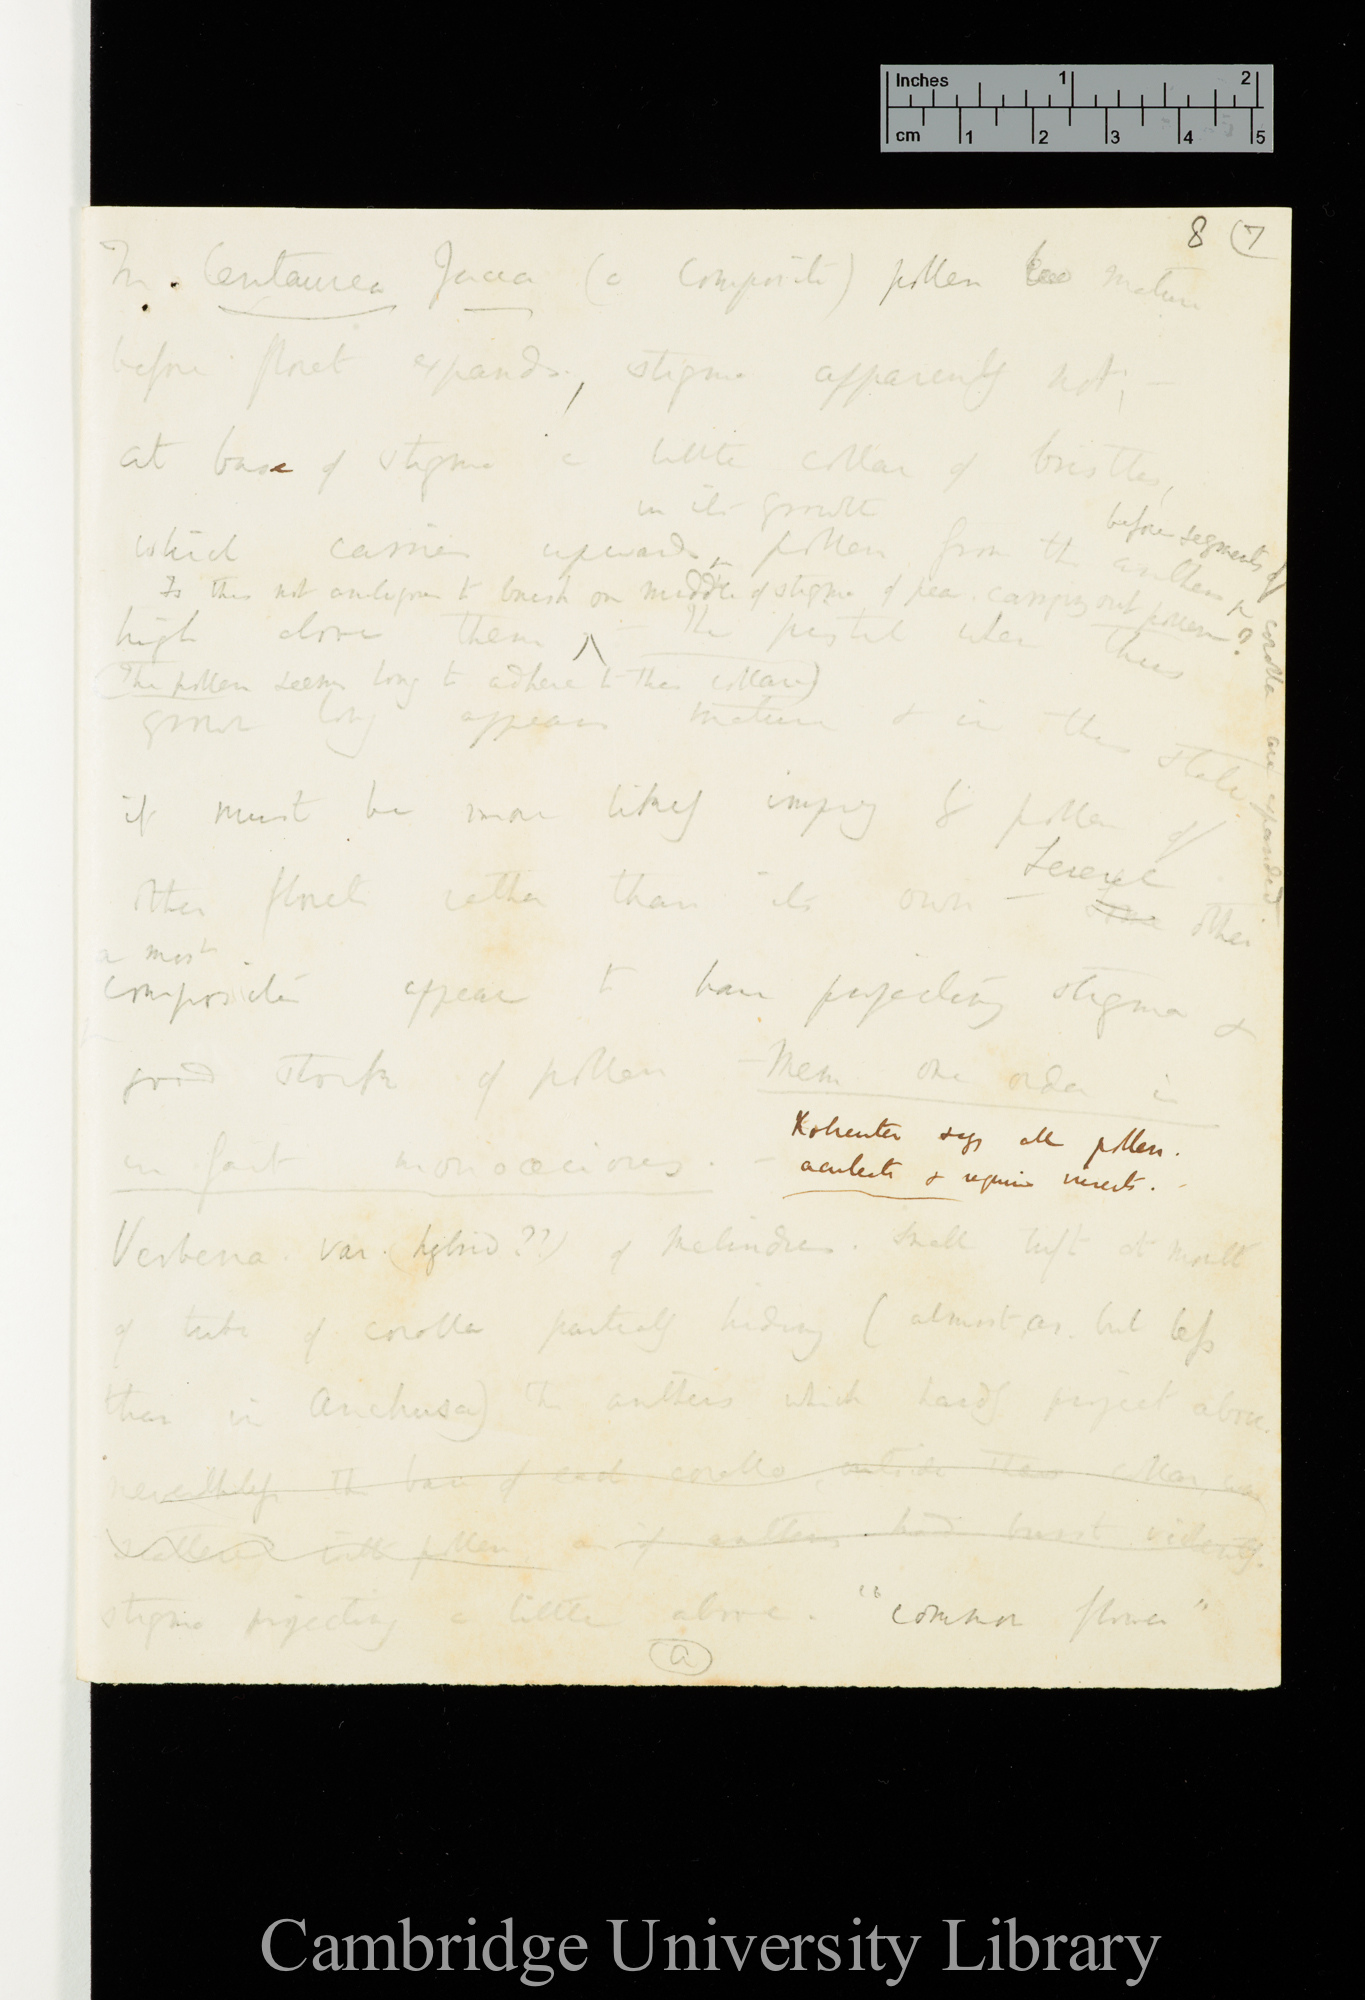 Inches 1 2
cm 1 2 3 4 5
8 (7
In Centaurea Jacea (a Composite) pollen mature
before floret expands, stigma apparently not; —
at base of stigma a little collar of bristles,
in its growth
which carries upwards pollen from the anthers
before segments of corolla are expanded
Is this not analogous to brush on middle of stigma of pea. carrying out pollen?
high above them — The pistil when thus
(The pollen seems long to adhere to this collar)
grown long appears mature & in this state
it must be more likely impreg by pollen of
other florets rather than its own — Several
Some other
& most
compositæ appear to have projecting stigma &
good stock of pollen — Mem one order is
in fact monoœcious. —
Kolreuter says all pollen.
aculeate & requires insects. -
Verbena. var. (hybrid??) of Melindres. Small tuft at mouth
of tube of corolla partially hiding (almost as. but less
than in Anchusa) the anthers which hardly project above.
nevertheless the base of each corolla outside this collar, was
scattered with pollen, as if anthers had burst violently.
stigma projecting a little above. "common flower"
(a)
Cambridge University Library